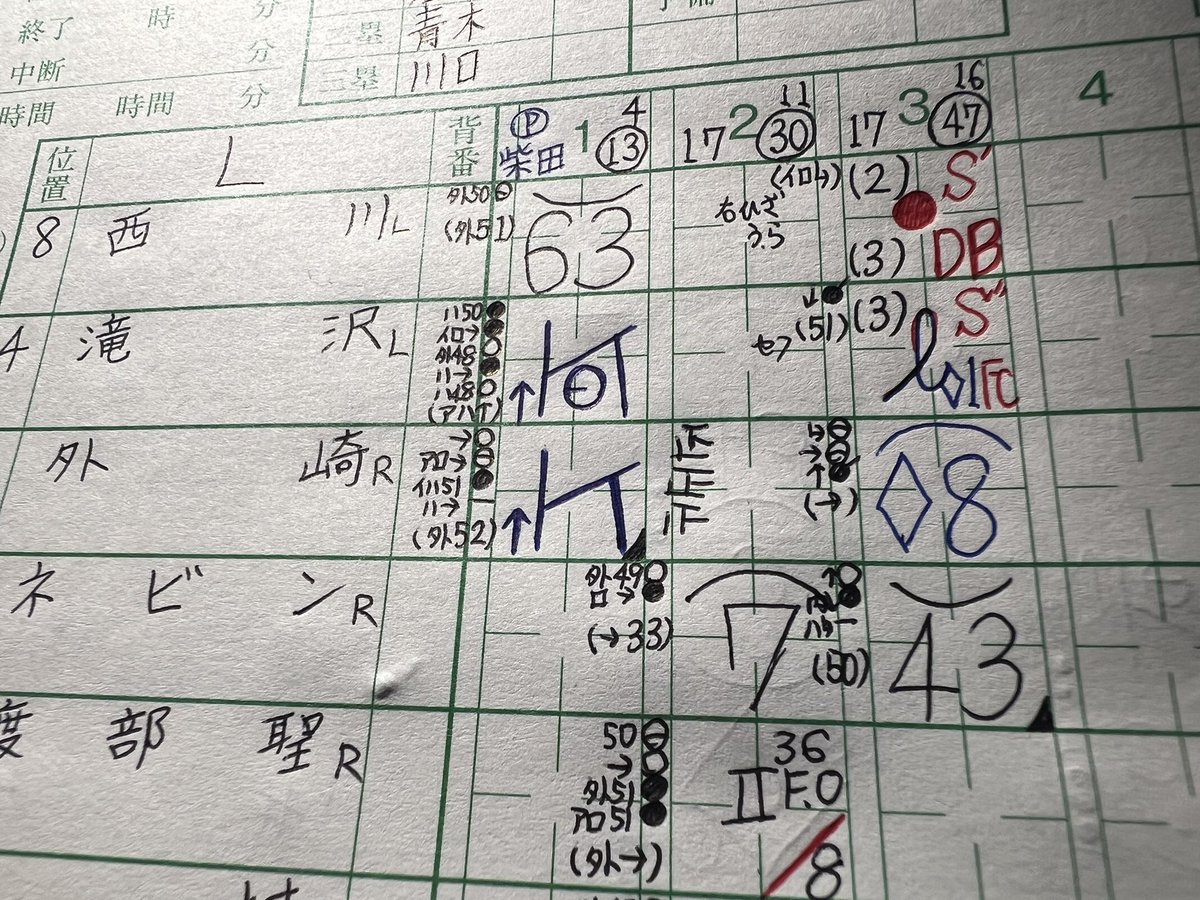 終了 時 分
二塁 青木
中断 分
三塁 川口
時間 時間 分
位置 L 背番 P 柴田 1 4 13
17 2 11 30
17 3 16 47
4
8 西 川L
外50
(外51)
63
(イロ↳)
右ひざ
うら
(2) S'
(3) DB
4 滝 沢L
ハ50
イロ→
外48
ハ→
ハ48
(アハ↑)
↑
セフ
(51)
(3) S"
◇1 FC
外 崎R
→
アロ→
イハ51
ハ→
(外52)
↑
↳
→
↑
(→)
◇8
ネ ビ ンR
外49
ロ→
(→33)
7
↑
(50)
43
度 部 聖R
50
→
外51
アロ51
(外→)
36
II F.O
8